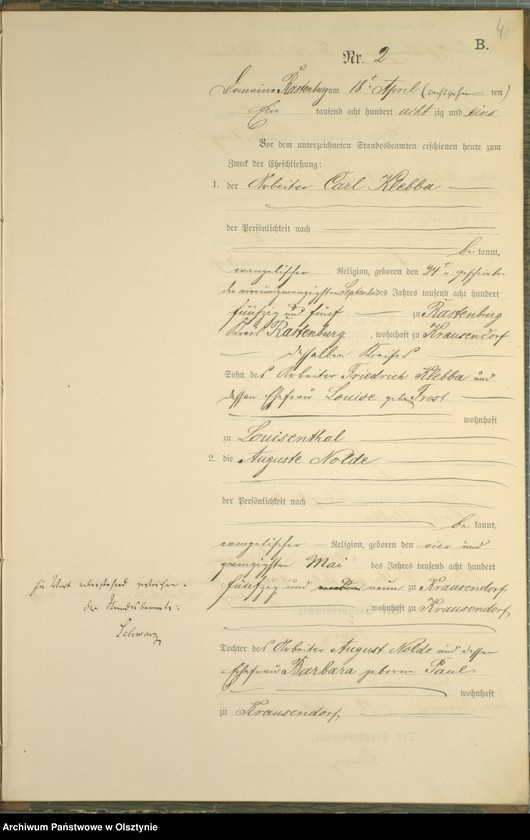 4.
B.
Nr. 2
Domaine Rastenburg am 18t April (achtzehn ten)
Ein tausend acht hundert acht zig und eins
Vor dem unterzeichneten Standesbeamten erschienen heute zum
Zweck der Eheschließung:
1. der Arbeiter Carl Klebba
der Persönlichkeit nach
be kannt,
evangelischer Religion, geboren den 24t geschrieben
den vierundzwanzigsten September des Jahres tausend acht hundert
fünfzig und fünf zu Rastenburg
Kreis Rastenburg, wohnhaft zu Krausendorf
desselben Kreises
Sohn des Arbeiter Friedrich Klebba und
dessen Ehefrau Louise geb. Frost
wohnhaft
zu Louisenthal
2. die Auguste Nolde
der Persönlichkeit nach
be kannt,
evangelischer Religion, geboren den vier und
zwanzigsten Mai des Jahres tausend acht hundert
fünfzig und neun zu Krausendorf
wohnhaft zu Krausendorf
Ein Wort nebenstehend gestrichen.
Der Standesbeamte:
Schwarz
Tochter des Arbeiter August Nolde und dessen
Ehefrau Barbara geborne Paul
wohnhaft
zu Krausendorf
Archiwum Państwowe w Olsztynie